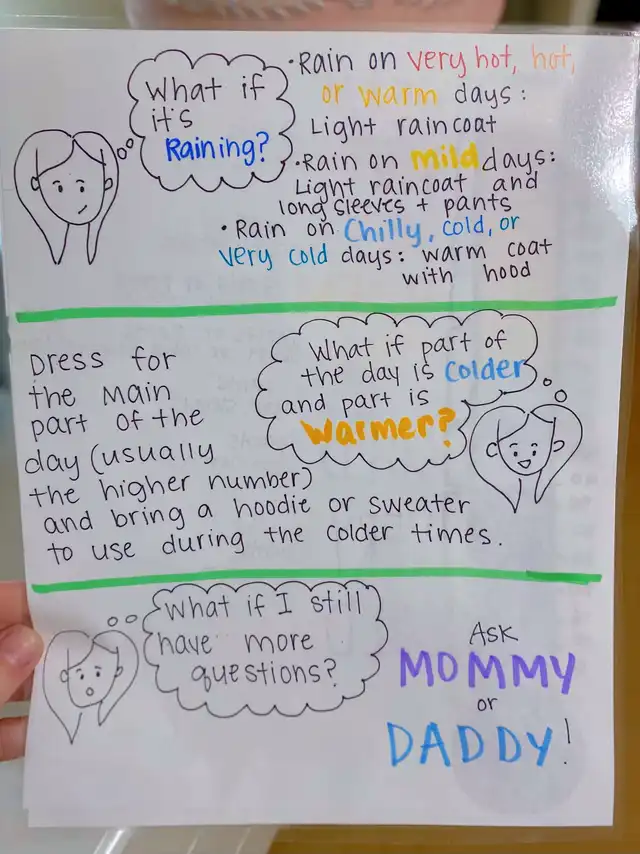 What if
it's
Raining?
• Rain on very hot, hot,
or warm days:
Light raincoat
• Rain on mild days:
Light raincoat and
long sleeves + pants
• Rain on Chilly, cold, or
very cold days: warm coat
with hood
What if part of
the day is Colder
and part is
Warmer?
Dress for
the main
part of the
day (usually
the higher number)
and bring a hoodie or sweater
to use during the colder times.
What if I still
have more
questions?
Ask
MOMMY
or
DADDY!